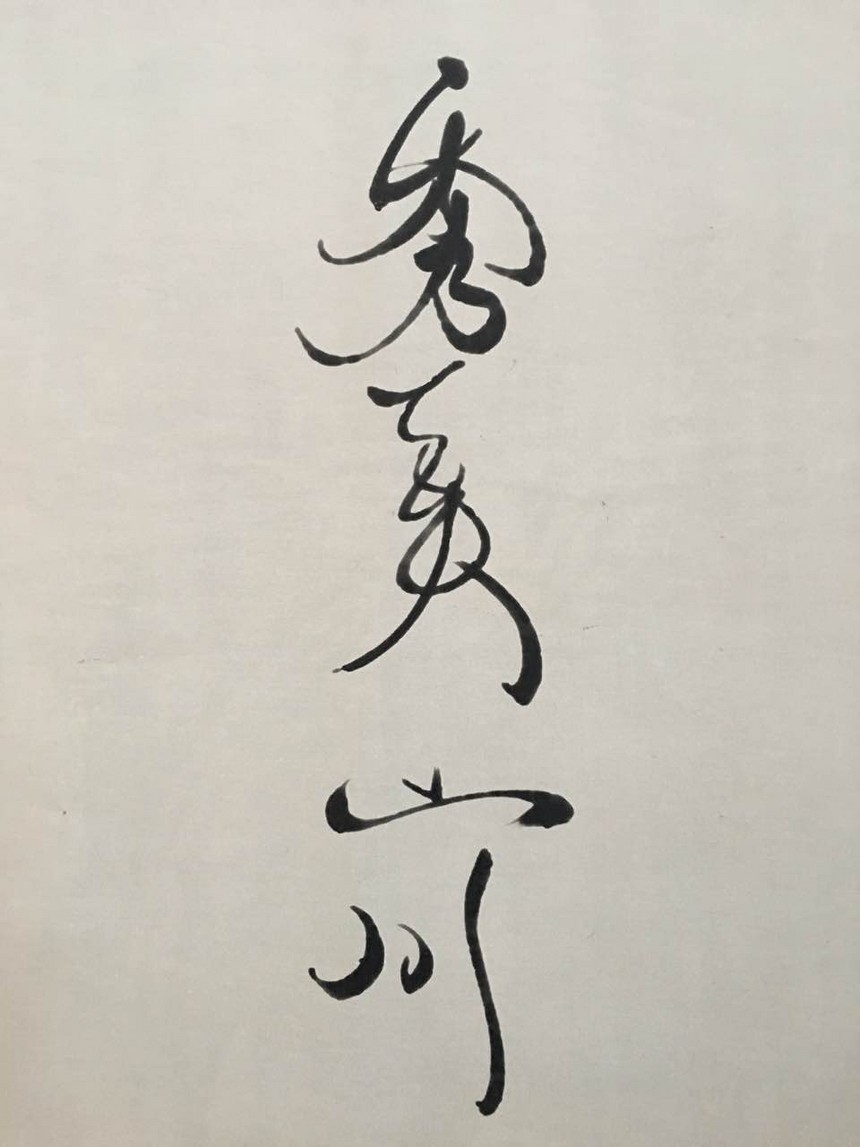 秀美山川